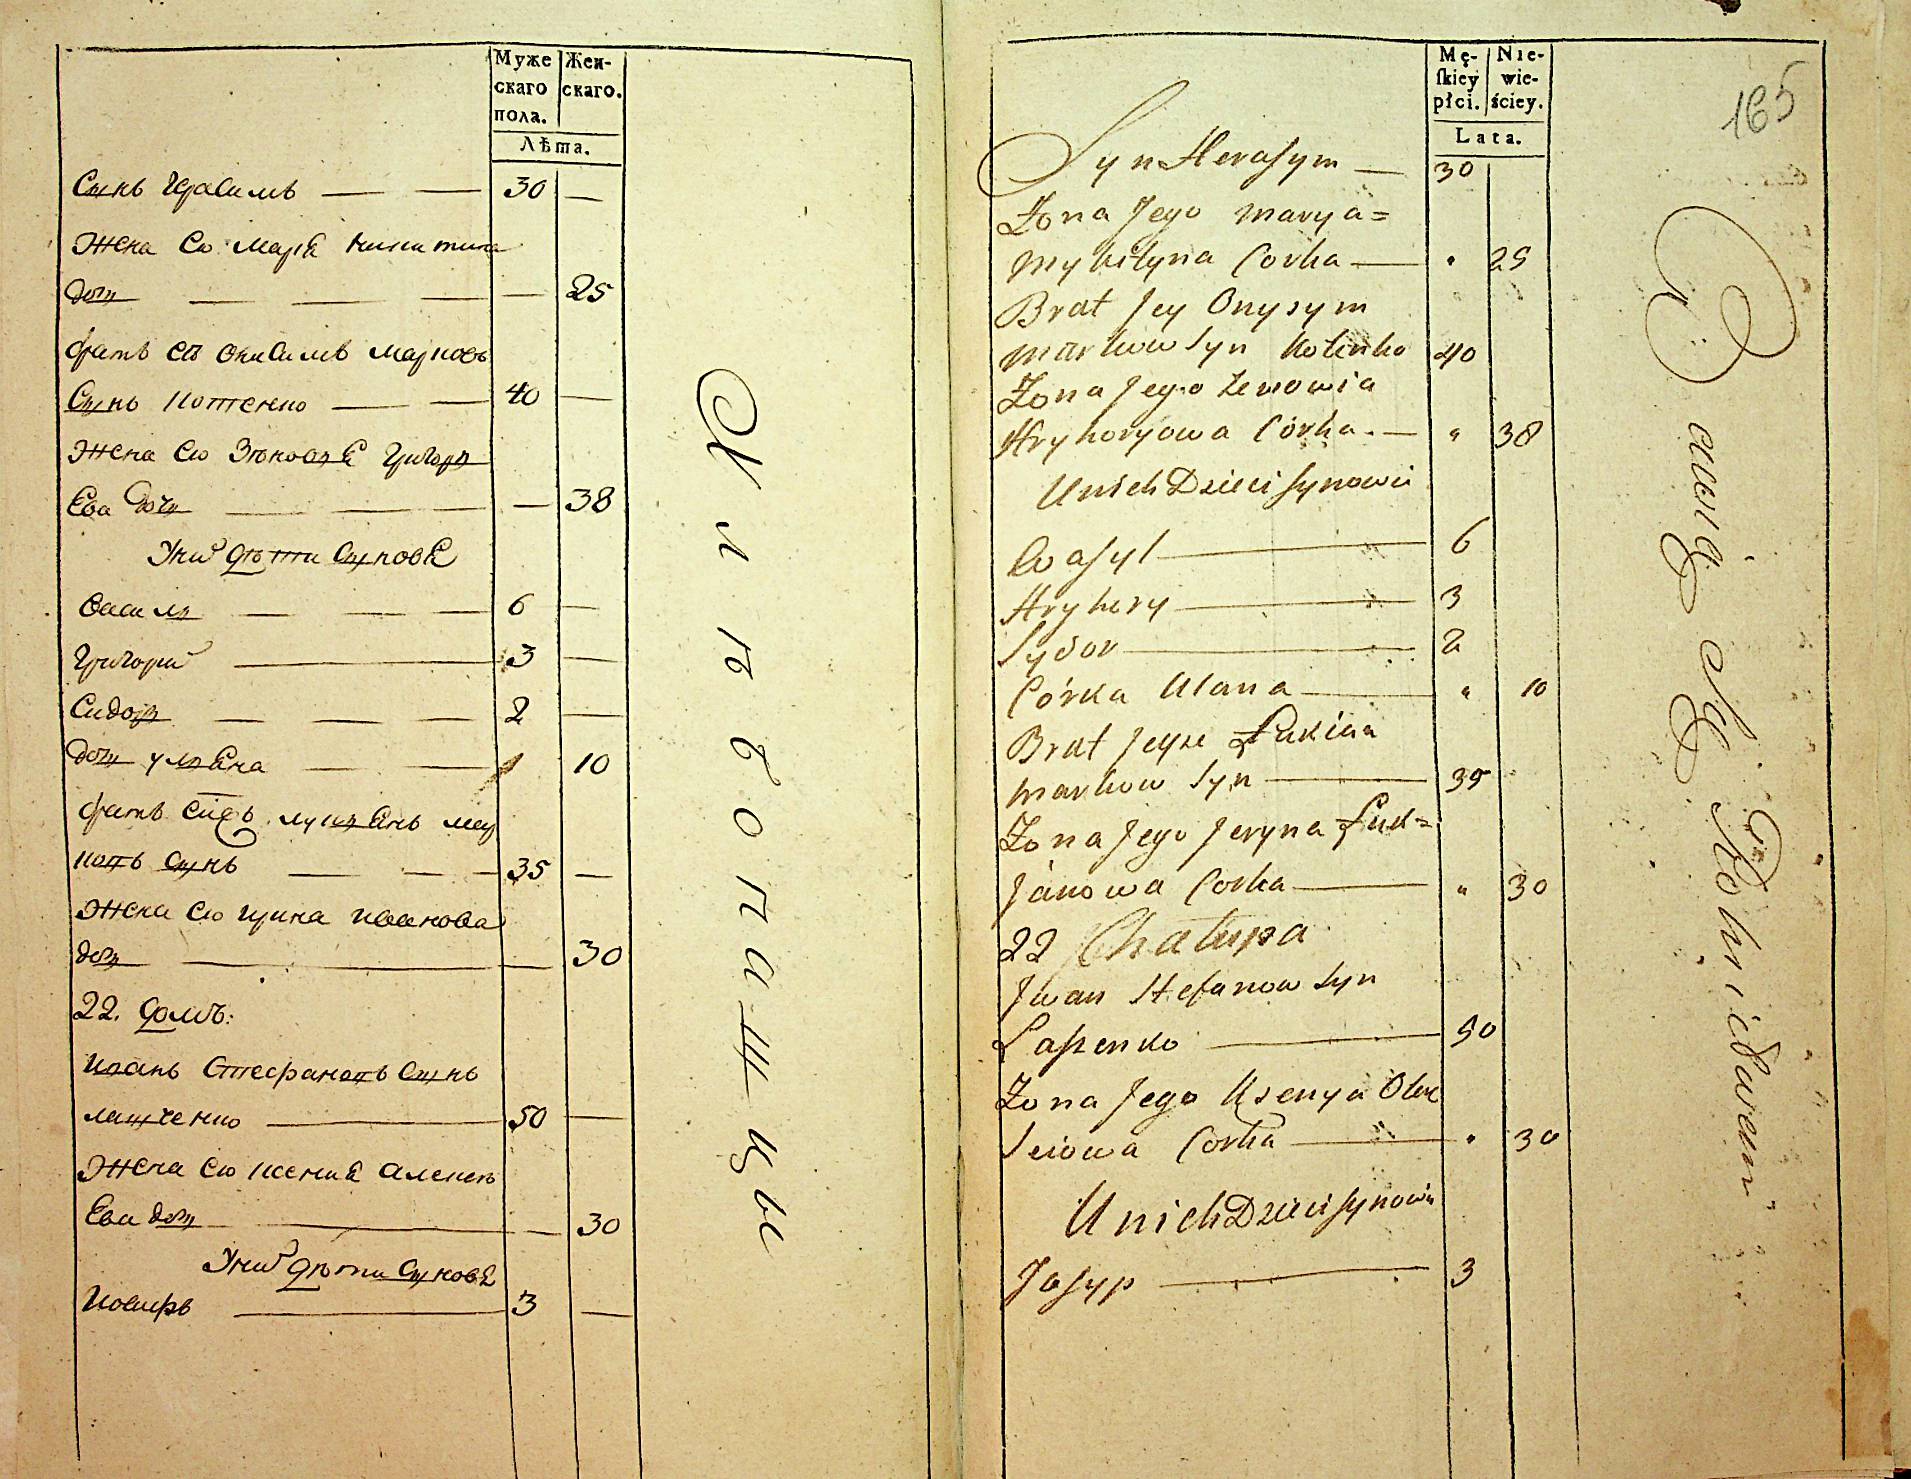 Муже
скаго
пола.
Жен-
скаго.
Лѣта.
Сынъ Герасимъ 30 —
Жена его Марія Никитина
дочь — 25
Братъ ей Онисимъ Марковъ
Сынъ Котенко 40 —
Жена его Зѣновія Григорь
Ева дочь — 38
У них дѣти Сыновѣ
Василь 6 —
Григорий 3 —
Сидоръ 2 —
дочь Уліяна 10
Братъ Лукіянъ Мар
ковъ Сынъ 35 —
Жена его Ирина Иванова
дочь 30
22. домъ:
Иванъ Стефановъ Сынъ
Лашченко 50 —
Жена его Ксенія Алексѣ
Ева дочь 30
У них дѣти Сыновѣ
Иосипъ 3 —
Хлѣбопашцы
Mę-
ſkiey
płci.
Nie-
wie-
ściey.
Lata.
165
Syn Herasym 30
Żona Jego Marya=
Mykityna Corka " 25
Brat Jey Onysym
Markow Syn Kotenko 40
Żona Jego Zenowia
Hryhoryowa Córka " 38
U nich Dzieci Synowie
Wasyl 6
Hryhory 3
Sydor 2
Córka Ulana " 10
Brat Jeyże Łukian
Markow Syn 35
Żona Jego Jeryna Łuk=
Janowa Corka " 30
22 Chałupa
Jwan Stefanow Syn
Laszenko 50
Żona Jego Ksenya Olex
Seiowa Corka " 30
U nich Dzieci Synowie
Josyp 3
Bawią Się Rolnictwem